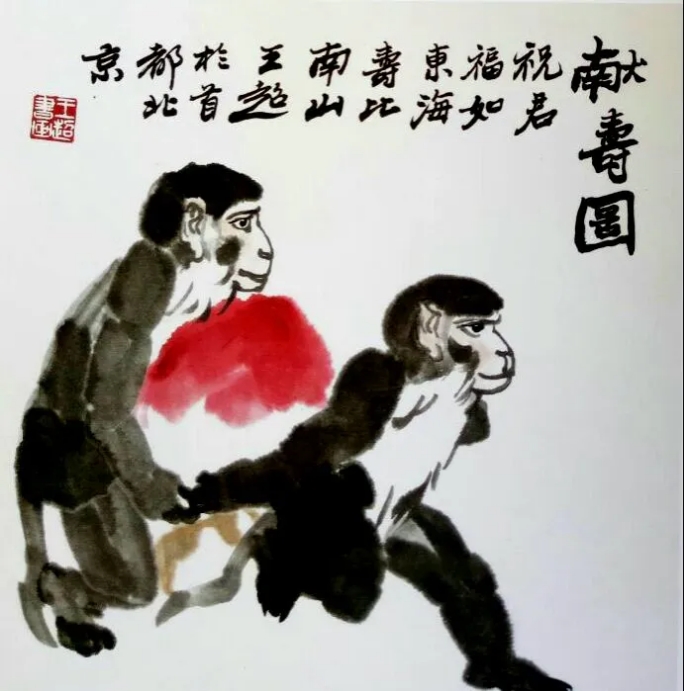 献壽圖
祝君
福如
東海
壽比
南山
王超
於首
都北
京
王超書画